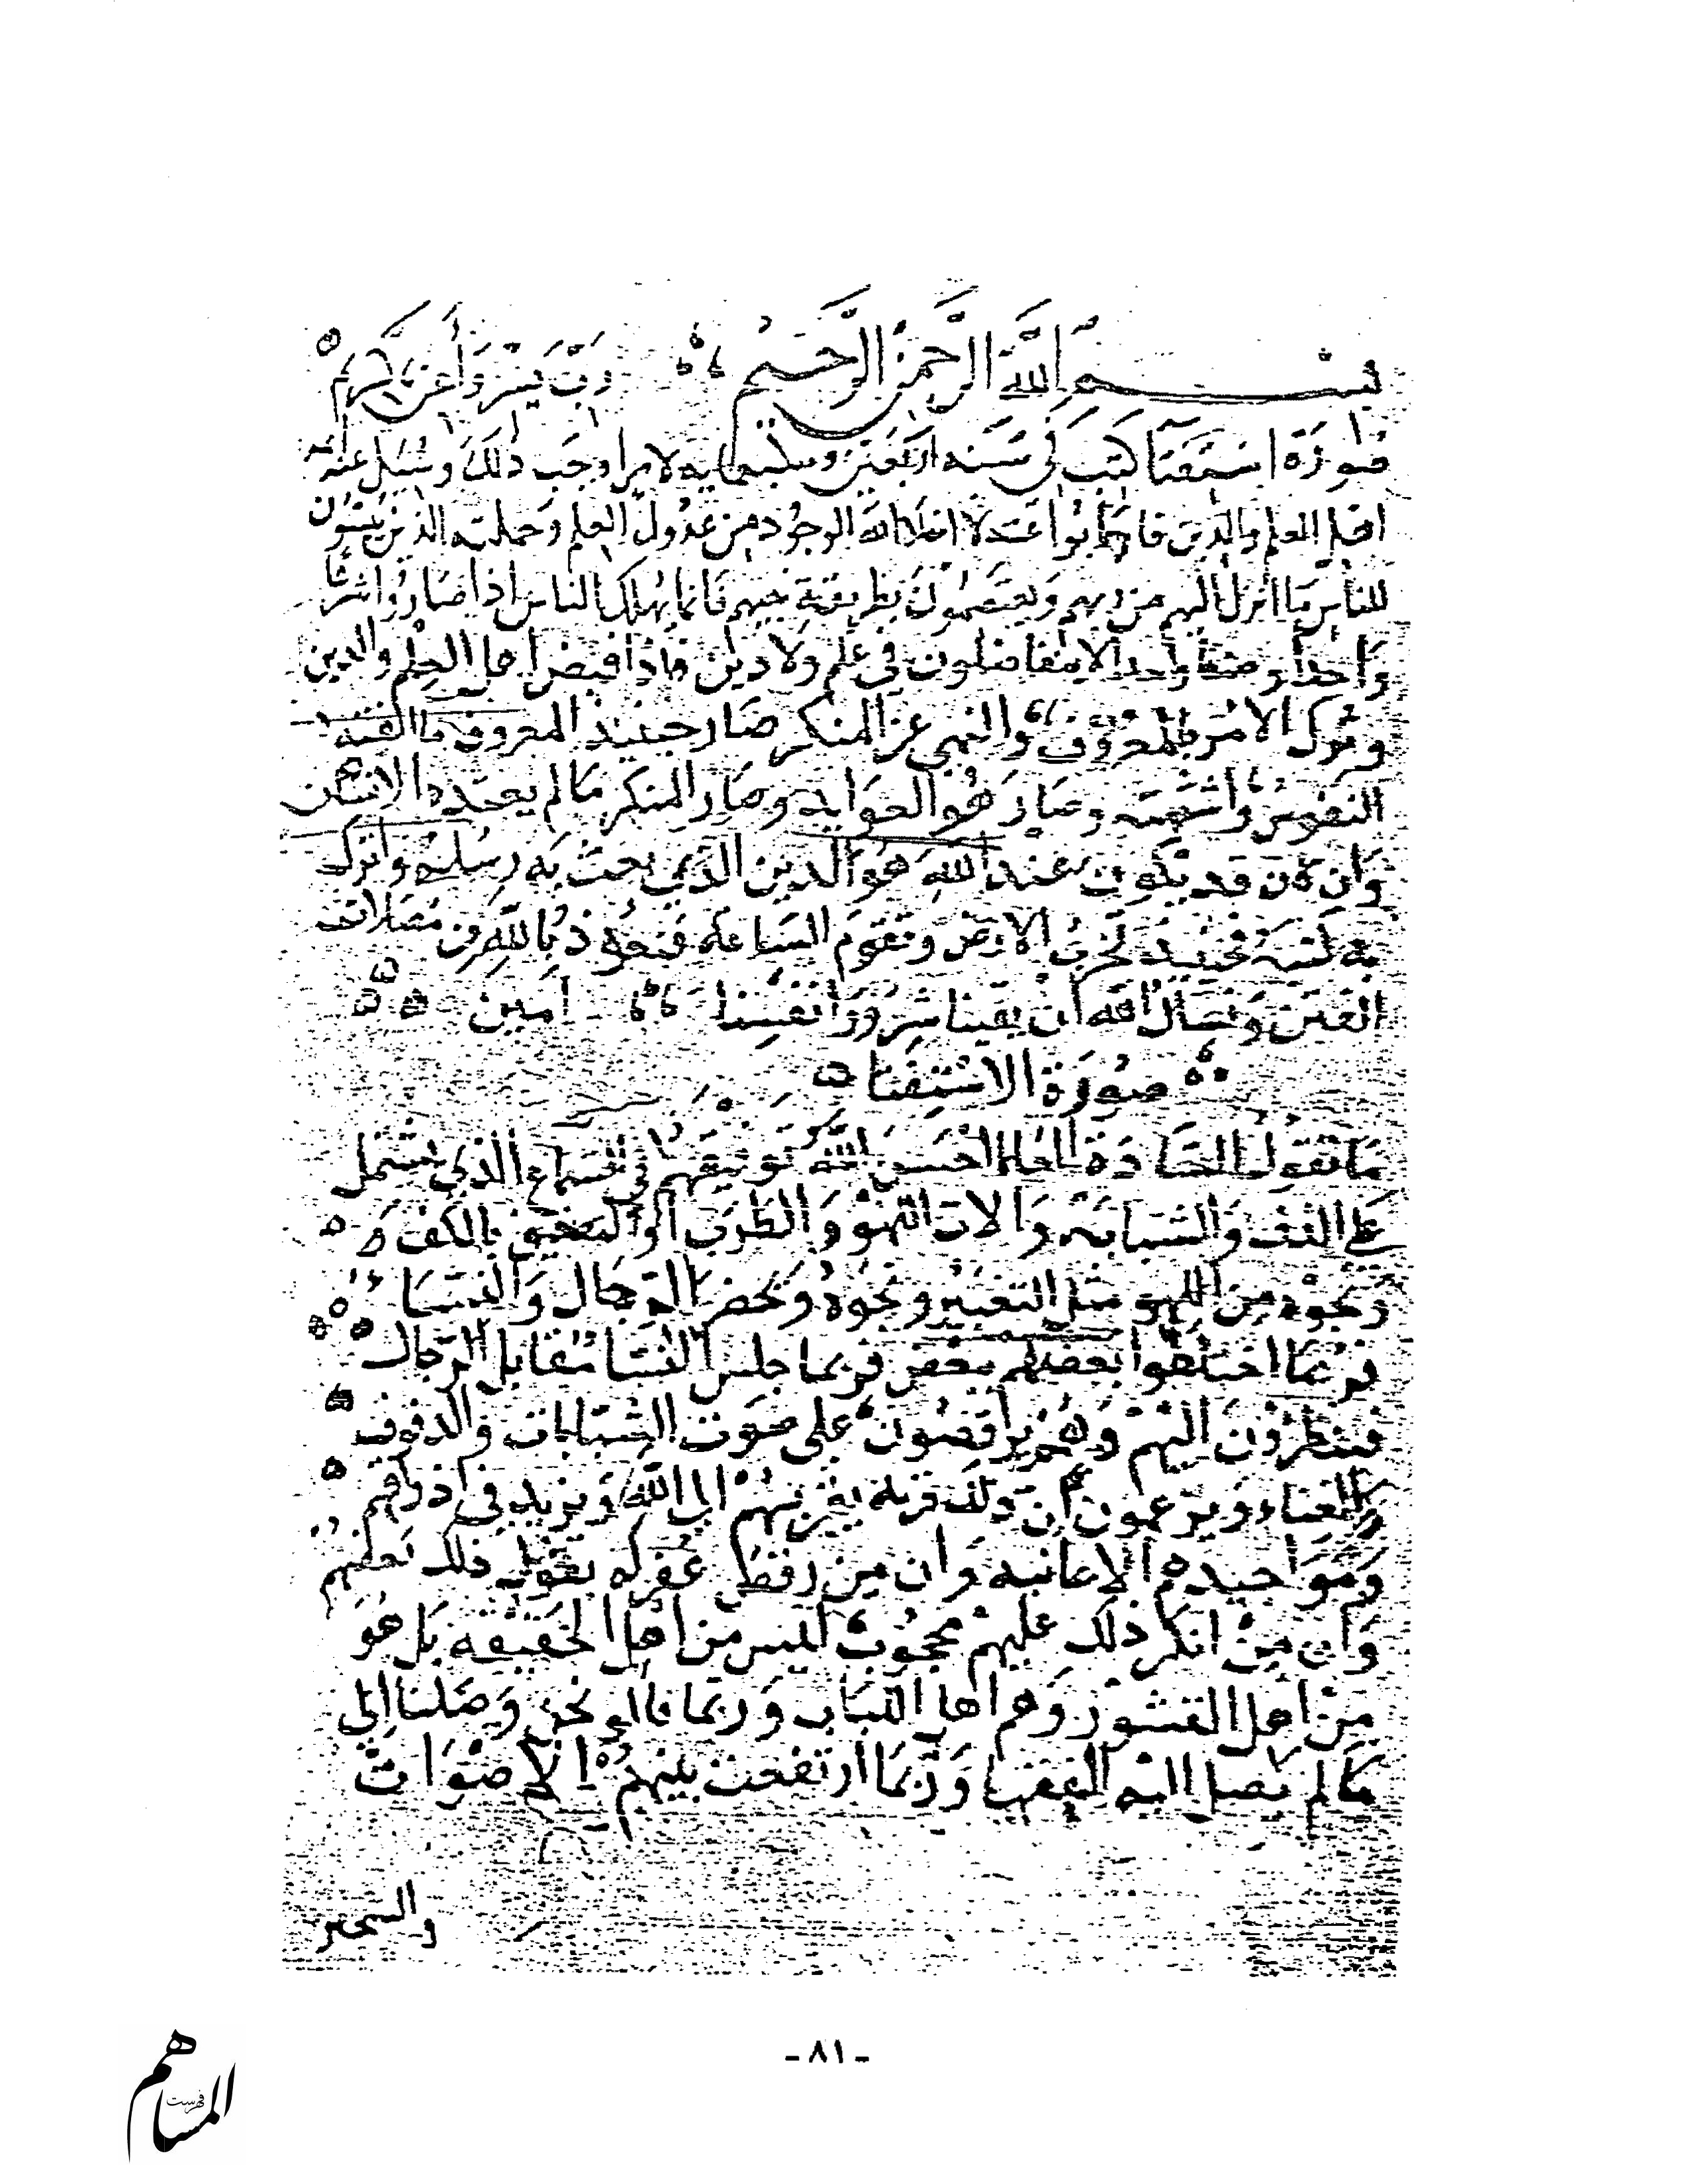 بسم الله الرحمن الرحيم رب يسر واعن يا كريم
صورة استفتا كتب في سنة اربعين وسبعمايه لامر اوجب ذلك وسئل عنه
اهل العلم والدين فانهم كانوا الوجود من عدول العلم وحملته الذين يبينون
للناس ما انزل اليهم من ربهم ويعتصمون بطريقة نبيهم فانما يهلك الناس اذا صاروا شيئا
واحدا وصنفا واحدا لا يتفاضلون في علم ولا دين فاذا قبض اهل العلم والدين
وترك الامر بالمعروف والنهي عن المنكر صار حينيذ المعروف ما الفته
النفوس واشتهته وصار هو العوايد وصار المنكر ما لم يعتده الانسان
وان كان قد يكون عند الله هو الدين الذي بعث به رسله وانزل
به كتبه فحينيذ تخرب الارض وتقوم الساعة فنعوذ بالله من مضلات
الفتن ونسال الله ان يقينا شرور انفسنا امين
صورة الاستفتا
ما تقول السادة العلما احسن الله توفيقهم في السماع الذي يشتمل
على الدف والشبابه والات اللهو والطرب او التصفيق بالكف
ونحوه من اللهو مثل التغبير ونحوه ويحضر الرجال والنساء
فربما اختلطوا بعضهم ببعض فربما جلس النسا مقابل الرجال
فينظرون اليهم وهم يرقصون على صوت الشبابات والدفوف
والغناء ويزعمون ان ذلك قربة يقربهم الى الله ويزيد في اذواقهم
ومواجيدهم الايمانيه وان من رقط غفر له بقوله ذلك بعضهم
وان من انكر ذلك عليهم محجوب ليس من اهل الحقيقه بل هو
من اهل القشور وهم اهل اللباب وربما قالوا نحن وصلنا الى
ما لم يصل اليه الفقها وربما ارتفعت بينهم الاصوات
والشخير
- ٨١ -
المساهم
فهرست